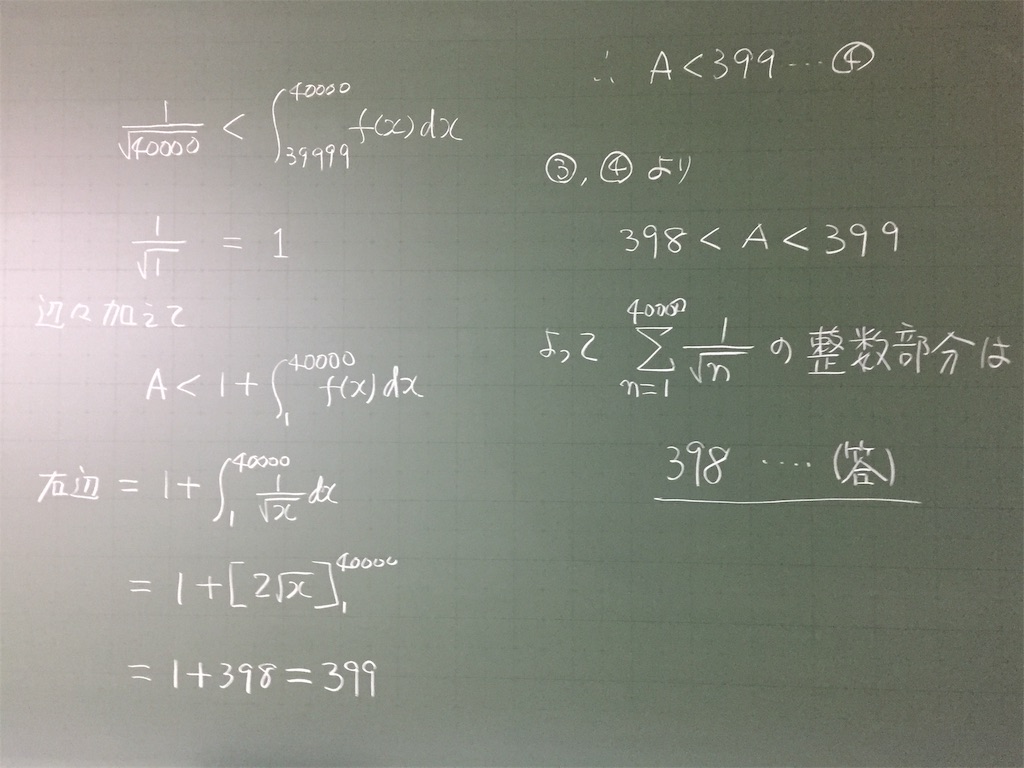 1/√40000 < ∫_{39999}^{40000} f(x)dx
1/√1 = 1
辺々加えて
A < 1 + ∫_1^{40000} f(x)dx
右辺 = 1 + ∫_1^{40000} 1/√x dx
= 1 + [2√x]_1^{40000}
= 1 + 398 = 399
∴ A < 399 … ④
③, ④ より
398 < A < 399
よって Σ_{n=1}^{40000} 1/√n の整数部分は
398 …. (答)